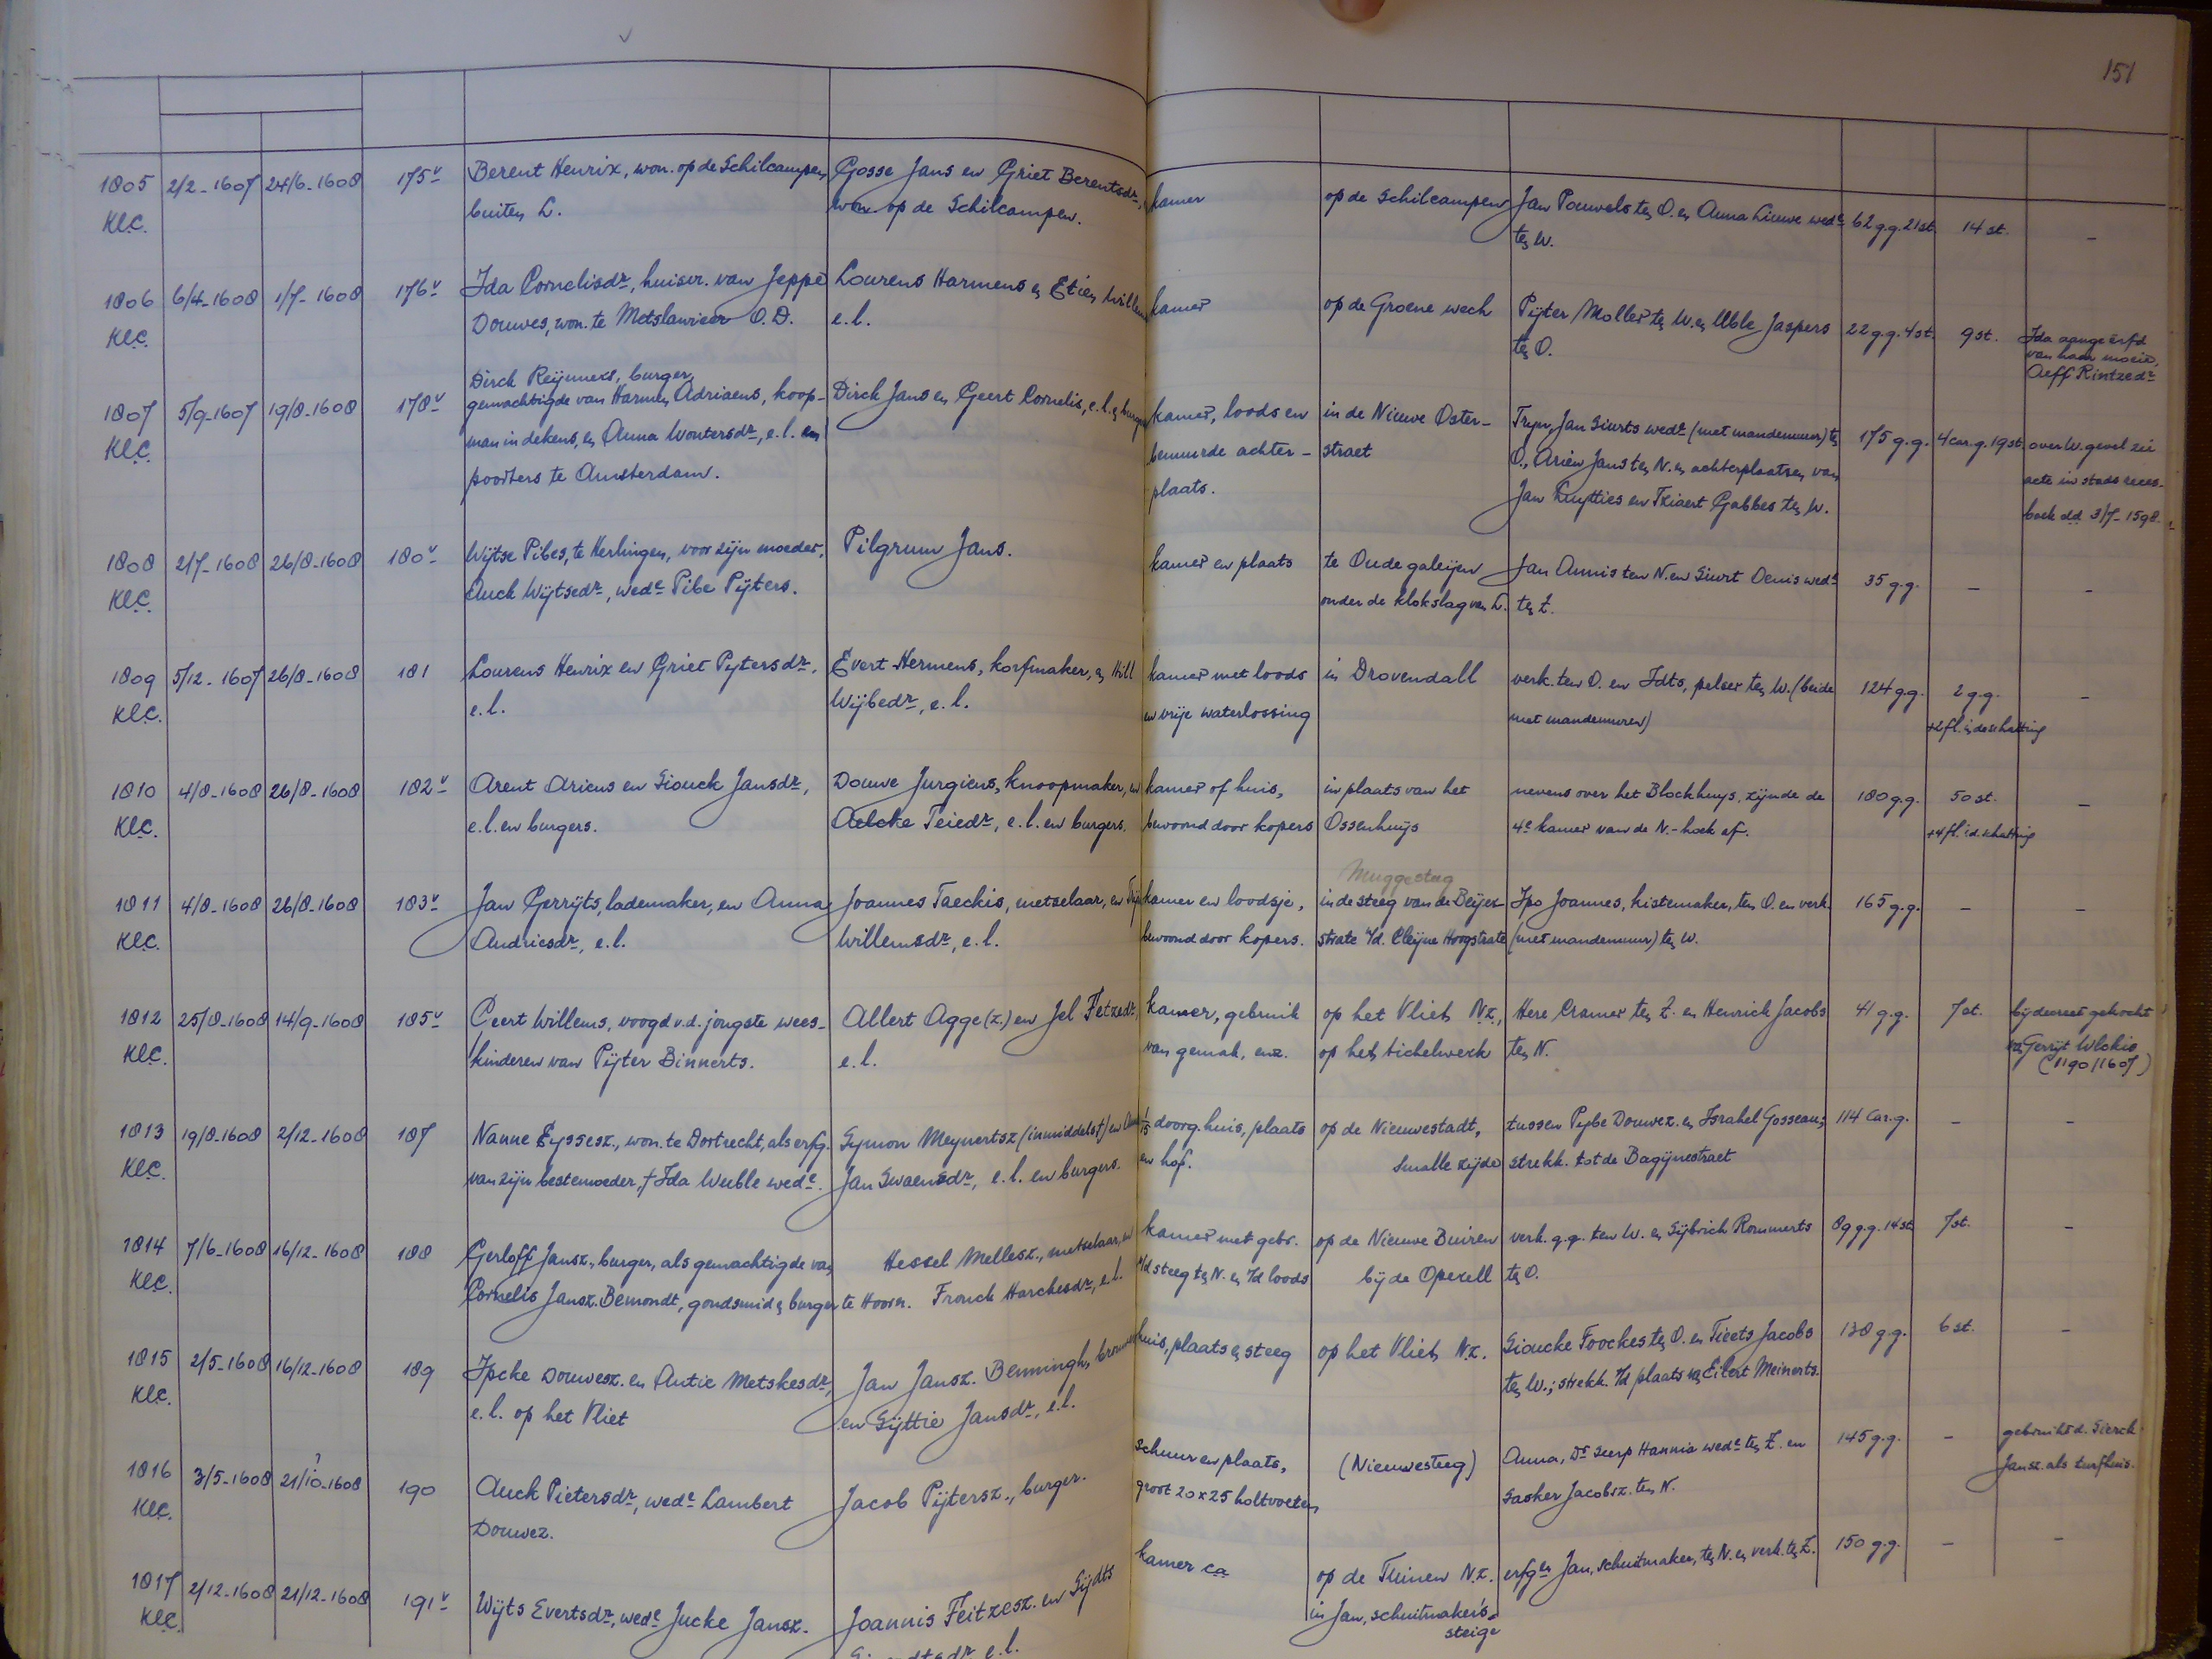 151
1805 2/2-1607 24/6-1608 175v Berent Henrix, won. op de Schilcampen Gosse Jans en Griet Berentsdr, kamer op de Schilcampen Jan Pouwels ten O. en Anna Lieuwe wede 62 g.g. 21 st. 14 st. -
Kl.C. buiten L. won op de Schilcampen. ten W.
1806 6/4-1608 1/7-1608 176v Ida Cornelisdr, huisvr. van Jeppe Lourens Harmens en Etien Willems kamer op de Groene wech Pijter Moller ten W. en Uble Jaspers 22 g.g. 4 st. 9 st. Ida aangeërfd
Kl.C. Douwes, won. te Metslawier O.D. e.l. ten O. van haar moeie,
Aeff Rintzedr
Dirck Reijnners, burger,
1807 5/9-1607 19/8-1608 178v gemachtigde van Harmen Adriaens, koop- Dirck Jans en Geert Cornelis, e.l. en burgers kamer, loods en in de Nieuwe Oster- Tryn, Jan Siurts wedr (met mandemuur) ten 175 g.g. 4 car.g. 19 st. over W. gevel zie
Kl.C. man in dekens, en Anna Woutersdr, e.l. en bemuurde achter- straet O., Arien Jans ten N. en achterplaatsen van acte in stads reces-
poorters te Amsterdam. plaats. Jan en Tziaert Gabbes ten W. boek dd. 3/7-1598.
1808 2/7-1608 26/8-1608 180v Wijtse Pibes, te Herlingen, voor zijn moeder, Pilgrum Jans. kamer en plaats te Oude galeijen Jan Annis ten N. en Siurt Oenis wede 35 g.g. - -
Kl.C. Auck Wijtsedr, wede Pibe Pijters. onder de klokslag van L. ten Z.
1809 5/12-1607 26/8-1608 181 Lourens Henrix en Griet Pytersdr, Evert Hermens, korfmaker, en Hill kamer met loods in Drovendall verk. ten O. en Idts, pelser ten W. (beide 124 g.g. 2 g.g. -
Kl.C. e.l. Wijbedr, e.l. en vrije waterlossing met mandemuren) +2 fl. in de schatting
1810 4/8-1608 26/8-1608 182v Arent Ariens en Siouck Jansdr, Douwe Jurgiens, knoopmaker, en kamer of huis, in plaats van het nevens over het Blockhuys, zijnde de 180 g.g. 50 st. -
Kl.C. e.l. en burgers. Aelcke Teiedr, e.l. en burgers. bewoond door kopers Ossenhuijs 4e kamer van de N.-hoek af. +4 fl. i.d. schatting
Muggesteeg
1811 4/8-1608 26/8-1608 183v Jan Gerrijts, lademaker, en Anna Joannes Taeckis, metselaar, en Trijn kamer en loodsje, in de steeg van de Beijer- Ipo Joannes, kistemaker, ten O. en verk. 165 g.g. - -
Kl.C. Andriesdr, e.l. Willemsdr, e.l. bewoond door kopers. strate n/d. Cleijne Hoogstrate (met mandemuur) ten W.
1812 25/8-1608 14/9-1608 185v Geert Willems, voogd v.d. jongste wees- Allert Agge(z.) en Jel Fetzedr, kamer, gebruik op het Vliet N.z., Here Cramer ten Z. en Henrick Jacobs 41 g.g. 7 st. bij decreet gekocht
Kl.C. kinderen van Pijter Binnerts. e.l. van gemak, enz. op het tichelwerk ten N. van Gerrijt Wlckis
(1190/1607)
1813 19/8-1608 2/12-1608 187 Nanne Eyssesz., won. te Dortrecht, als erfg. Symon Meynertsz (inmiddels †) en Anna 1/15 doorg. huis, plaats op de Nieuwestadt, tussen Pybe Douwez. en Israhel Gosseans, 114 Car.g. - -
Kl.C. van zijn bestemoeder, † Ida Weble wede. Jan Swaensdr, e.l. en burgers. en hof. Smalle zijde strekk. tot de Bagijnestraet
1814 7/6-1608 16/12-1608 188 Gerloff Jansz., burger, als gemachtigde van Hessel Mellesz., metselaar, en kamer met gebr. op de Nieuwe Buiren verk. q.q. ten W. en Sijbrich Rommerts 89 g.g. 14 st. 7 st. -
Kl.C. Cornelis Jansz. Bemondt, goudsmid en burger te Hoorn. Frouck Harckesdr, e.l. v/d steeg ten N. en v/d loods bij de Opexell ten O.
1815 2/5-1608 16/12-1608 189 Ipcke Douwesz. en Antie Metskesdr, Jan Jansz. Benningh, brouwer huis, plaats en steeg op het Vliet N.z. Sioucke Foockes ten O. en Tieets Jacobs 138 g.g. 6 st. -
KL.C. e.l. op het Vliet en Sijttie Jansdr, e.l. ten W.; strekk. t/d plaats van Eilert Meinerts.
1816 3/5-1608 21/10?-1608 190 Auck Pietersdr, wede Lambert Jacob Pijtersz., burger. schuur en plaats, (Nieuwesteeg) Anna, Dr Seerp Hannia wede ten Z. en 145 g.g. - gebruikt d. Sierck
KL.C. Douwez. groot 20 x 25 holtvoeten Sasker Jacobsz. ten N. Jansz. als turfhuis.
1817 2/12-1608 21/12-1608 191v Wijts Evertsdr, wede Jucke Jansz. Joannis Feitzesz. en Sijdts kamer ca op de Tuinen N.z. erfgen Jan, schuitmaker, ten N. en verk. ten Z. 150 g.g. - -
KL.C. e.l. in Jan, schuitmaker's-
steige